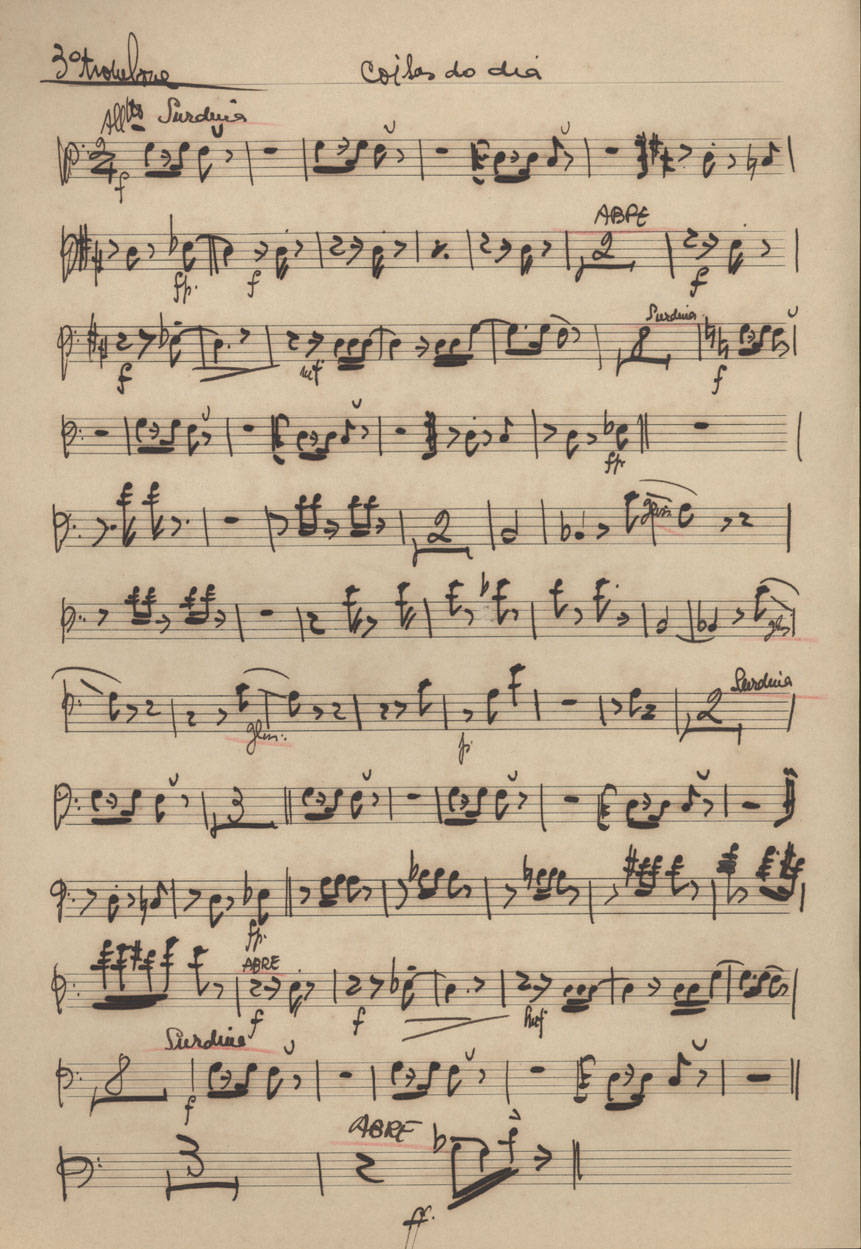 3º trombone Coisas do dia
Allto Surdina
2/4
f
ABRE
2
fp. f f
Surdina
8
f mf f
fp.
2 glin.
glin.
Surdina
2
glin. p.
3
fp.
ABRE
f f mf
Surdina
8
f
ABRE
3
ff.